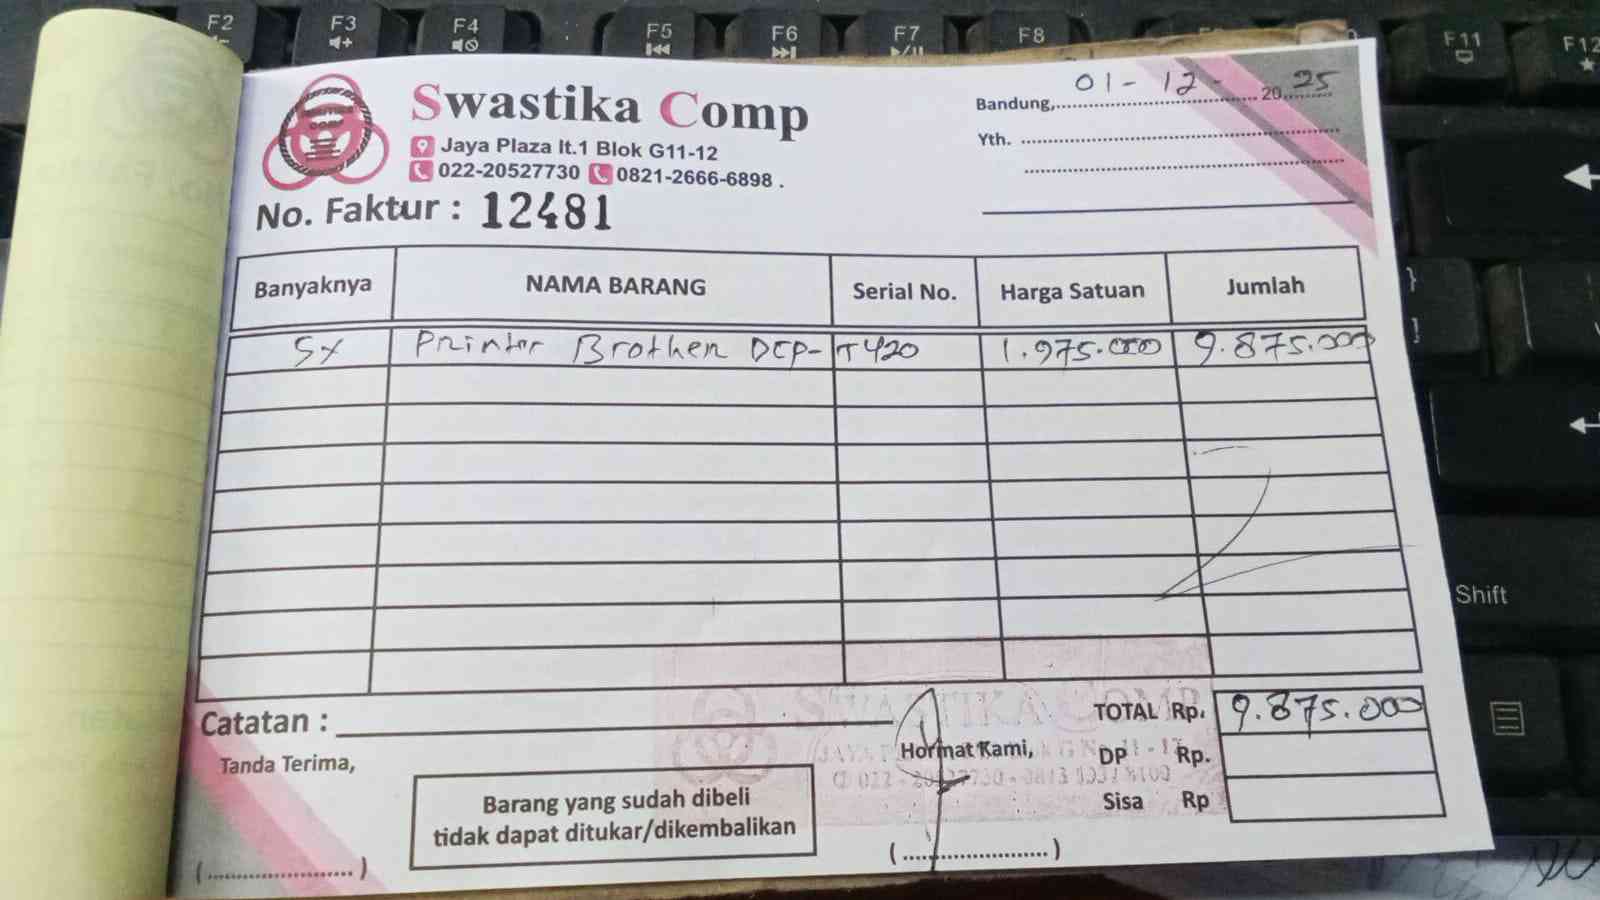 F2 F3 F4 F5 F6 F7 F8 F11 F12
Swastika Comp
Jaya Plaza lt.1 Blok G11-12
022-20527730 0821-2666-6898 .
No. Faktur : 12481
Bandung, 01-12-2025
Yth.
Banyaknya NAMA BARANG Serial No. Harga Satuan Jumlah
5x Printer Brother DCP-T420 1.975.000 9.875.000
Shift
SWASTIKA COMP
Catatan :
TOTAL Rp. 9.875.000
Tanda Terima,
Hormat Kami,
DP Rp.
Sisa Rp
Barang yang sudah dibeli
tidak dapat ditukar/dikembalikan
(........................)
(........................)